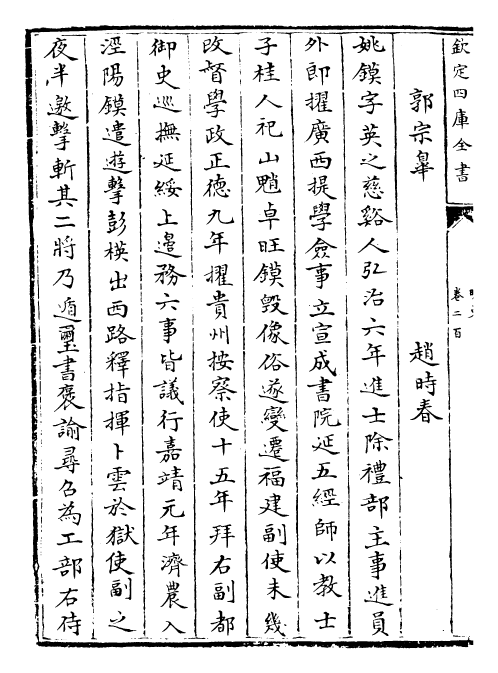 欽定四庫全書
卷二百
郭宗臯　趙時春
姚鏌字英之慈谿人弘治六年進士除禮部主事進員
外郎擢廣西提學僉事立宣成書院延五經師以教士
子桂人祀山魈卓旺鏌毁像俗遂變遷福建副使未幾
改督學政正德九年擢貴州按察使十五年拜右副都
御史巡撫延綏上邉務六事皆議行嘉靖元年濟農入
涇陽鏌遣遊擊彭楧出西路釋指揮卜雲於獄使副之
夜半邀擊斬其二將乃遁璽書褒諭尋召為工部右侍